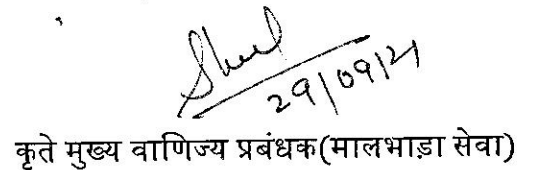 29/09/21
कृते मुख्य वाणिज्य प्रबंधक(मालभाड़ा सेवा)